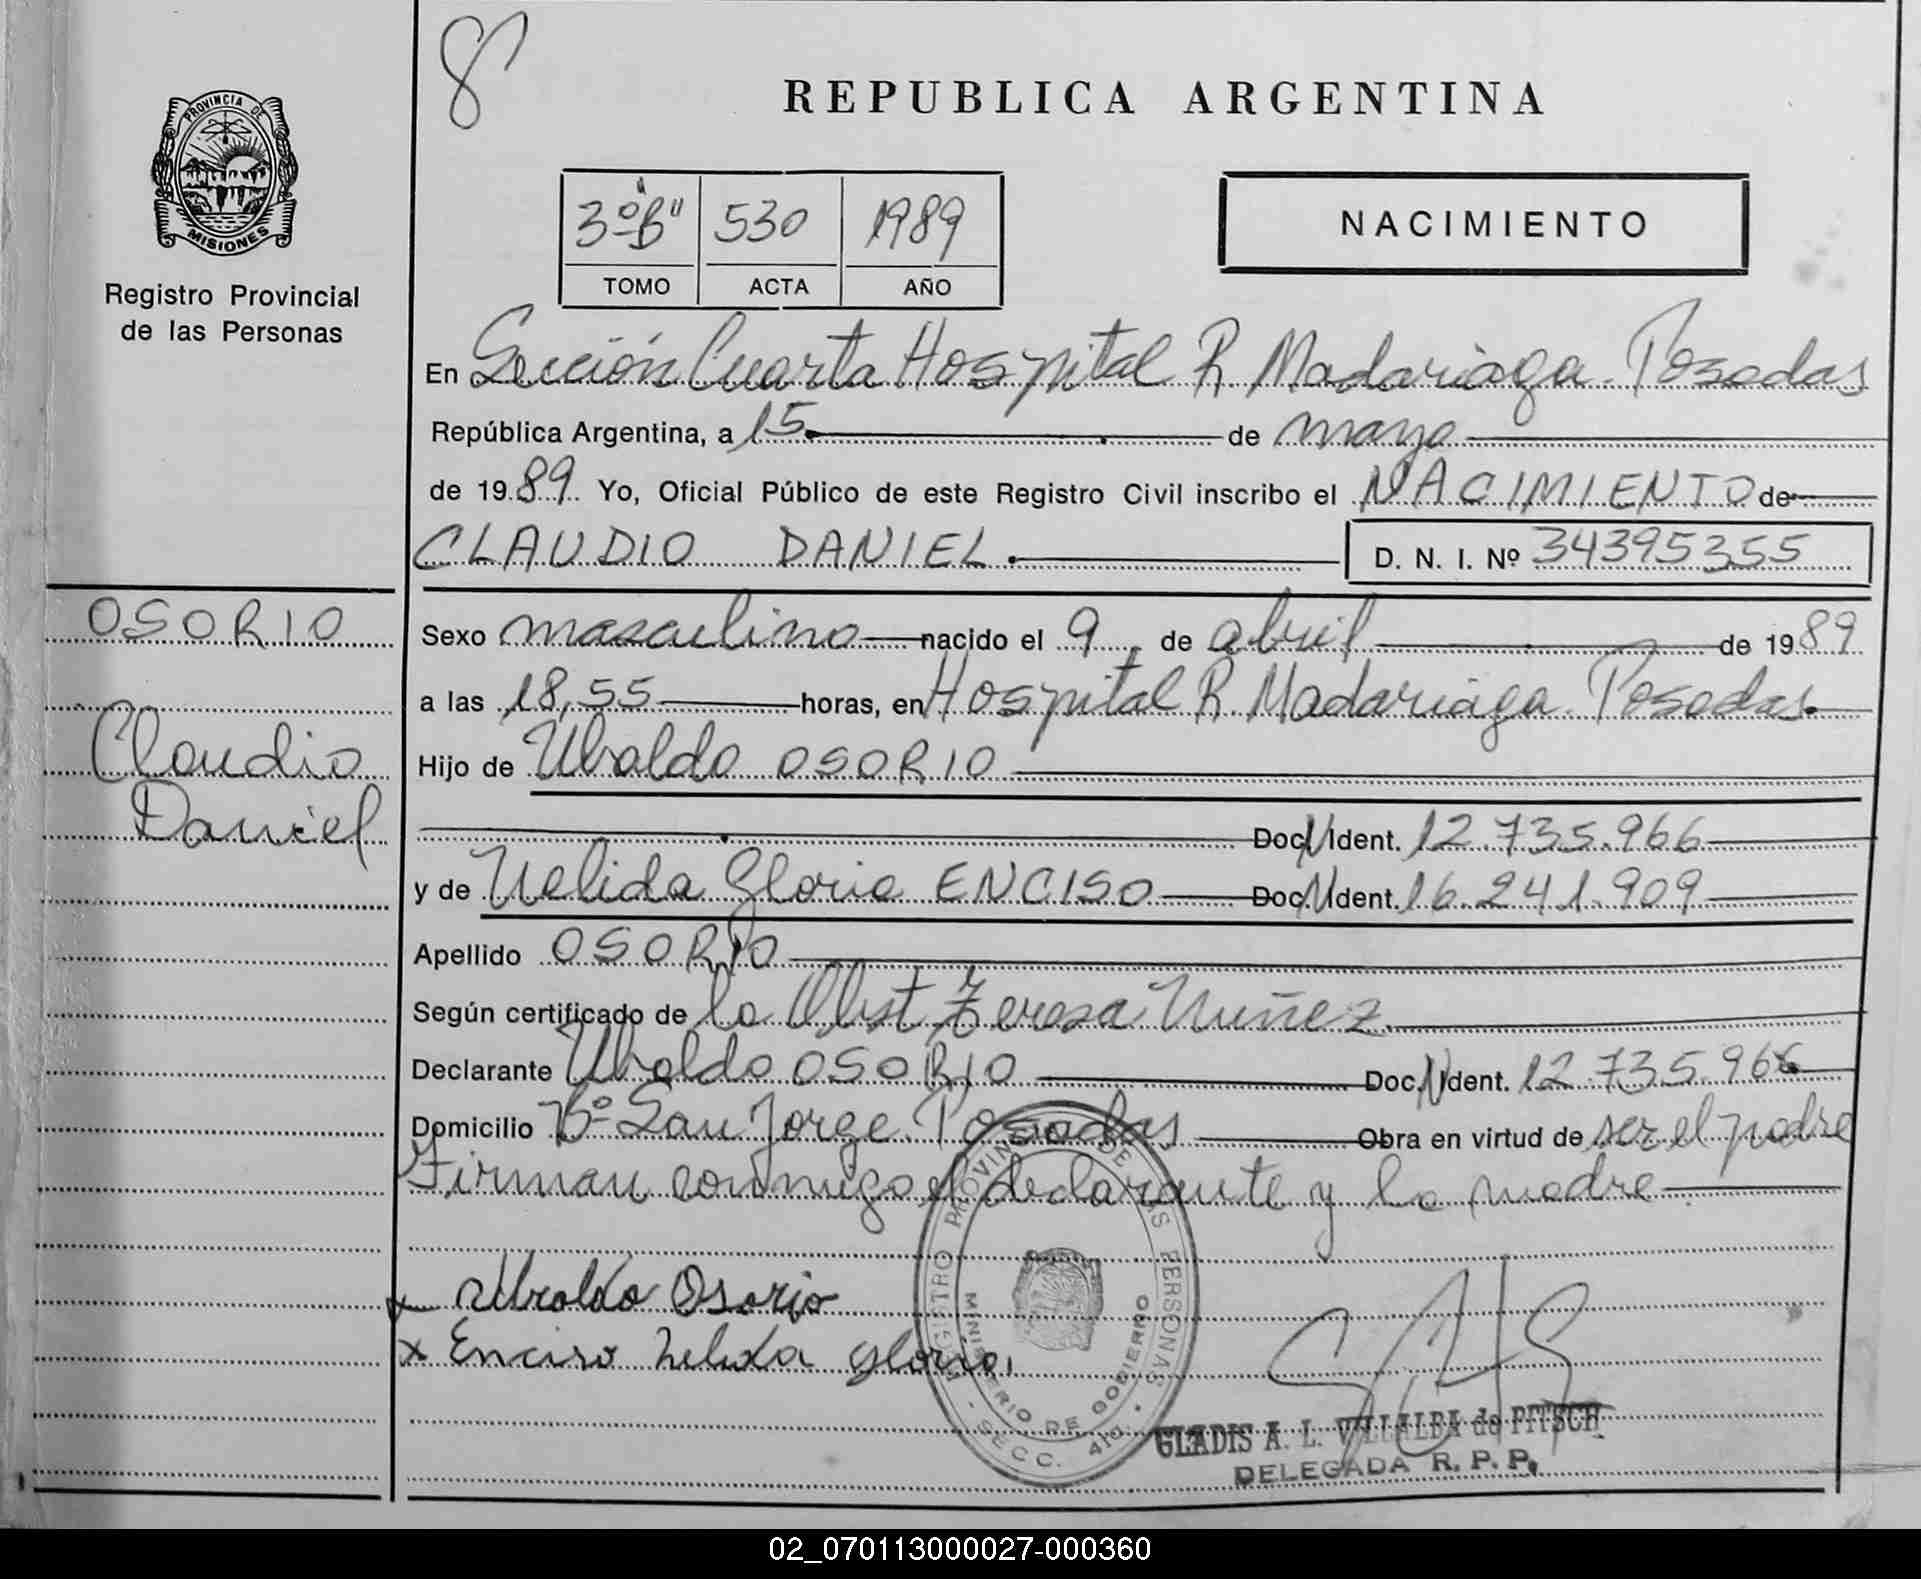 8
REPUBLICA ARGENTINA
PROVINCIA DE
MISIONES
Registro Provincial
de las Personas
3º "B" 530 1989
TOMO ACTA AÑO
NACIMIENTO
En Sección Cuarta Hospital R. Madariaga. Posadas
República Argentina, a 15 de mayo
de 1989 Yo, Oficial Público de este Registro Civil inscribo el NACIMIENTO de
CLAUDIO DANIEL. D. N. I. Nº 34395355
OSORIO
Claudio
Daniel
Sexo masculino nacido el 9 de abril de 1989
a las 18,55 horas, en Hospital R. Madariaga. Posadas.
Hijo de Ubaldo OSORIO
Doc. N Ident. 12.735.966
y de Nelida Gloria ENCISO Doc. N Ident. 16.241.909
Apellido OSORIO
Según certificado de la Obst. Teresa Nuñez
Declarante Ubaldo OSORIO Doc. N Ident. 12.735.966
Domicilio Bº San Jorge. Posadas Obra en virtud de ser el padre
Firman conmigo el declarante y la madre
x Ubaldo Osorio
x Enciso Nelida Gloria.
REGISTRO PROVINCIAL DE LAS PERSONAS
MINISTERIO DE GOBIERNO
- SECC. 4ta. -
GLADIS A. L. VILLALBA de PITSCH
DELEGADA R. P. P.
02_070113000027-000360